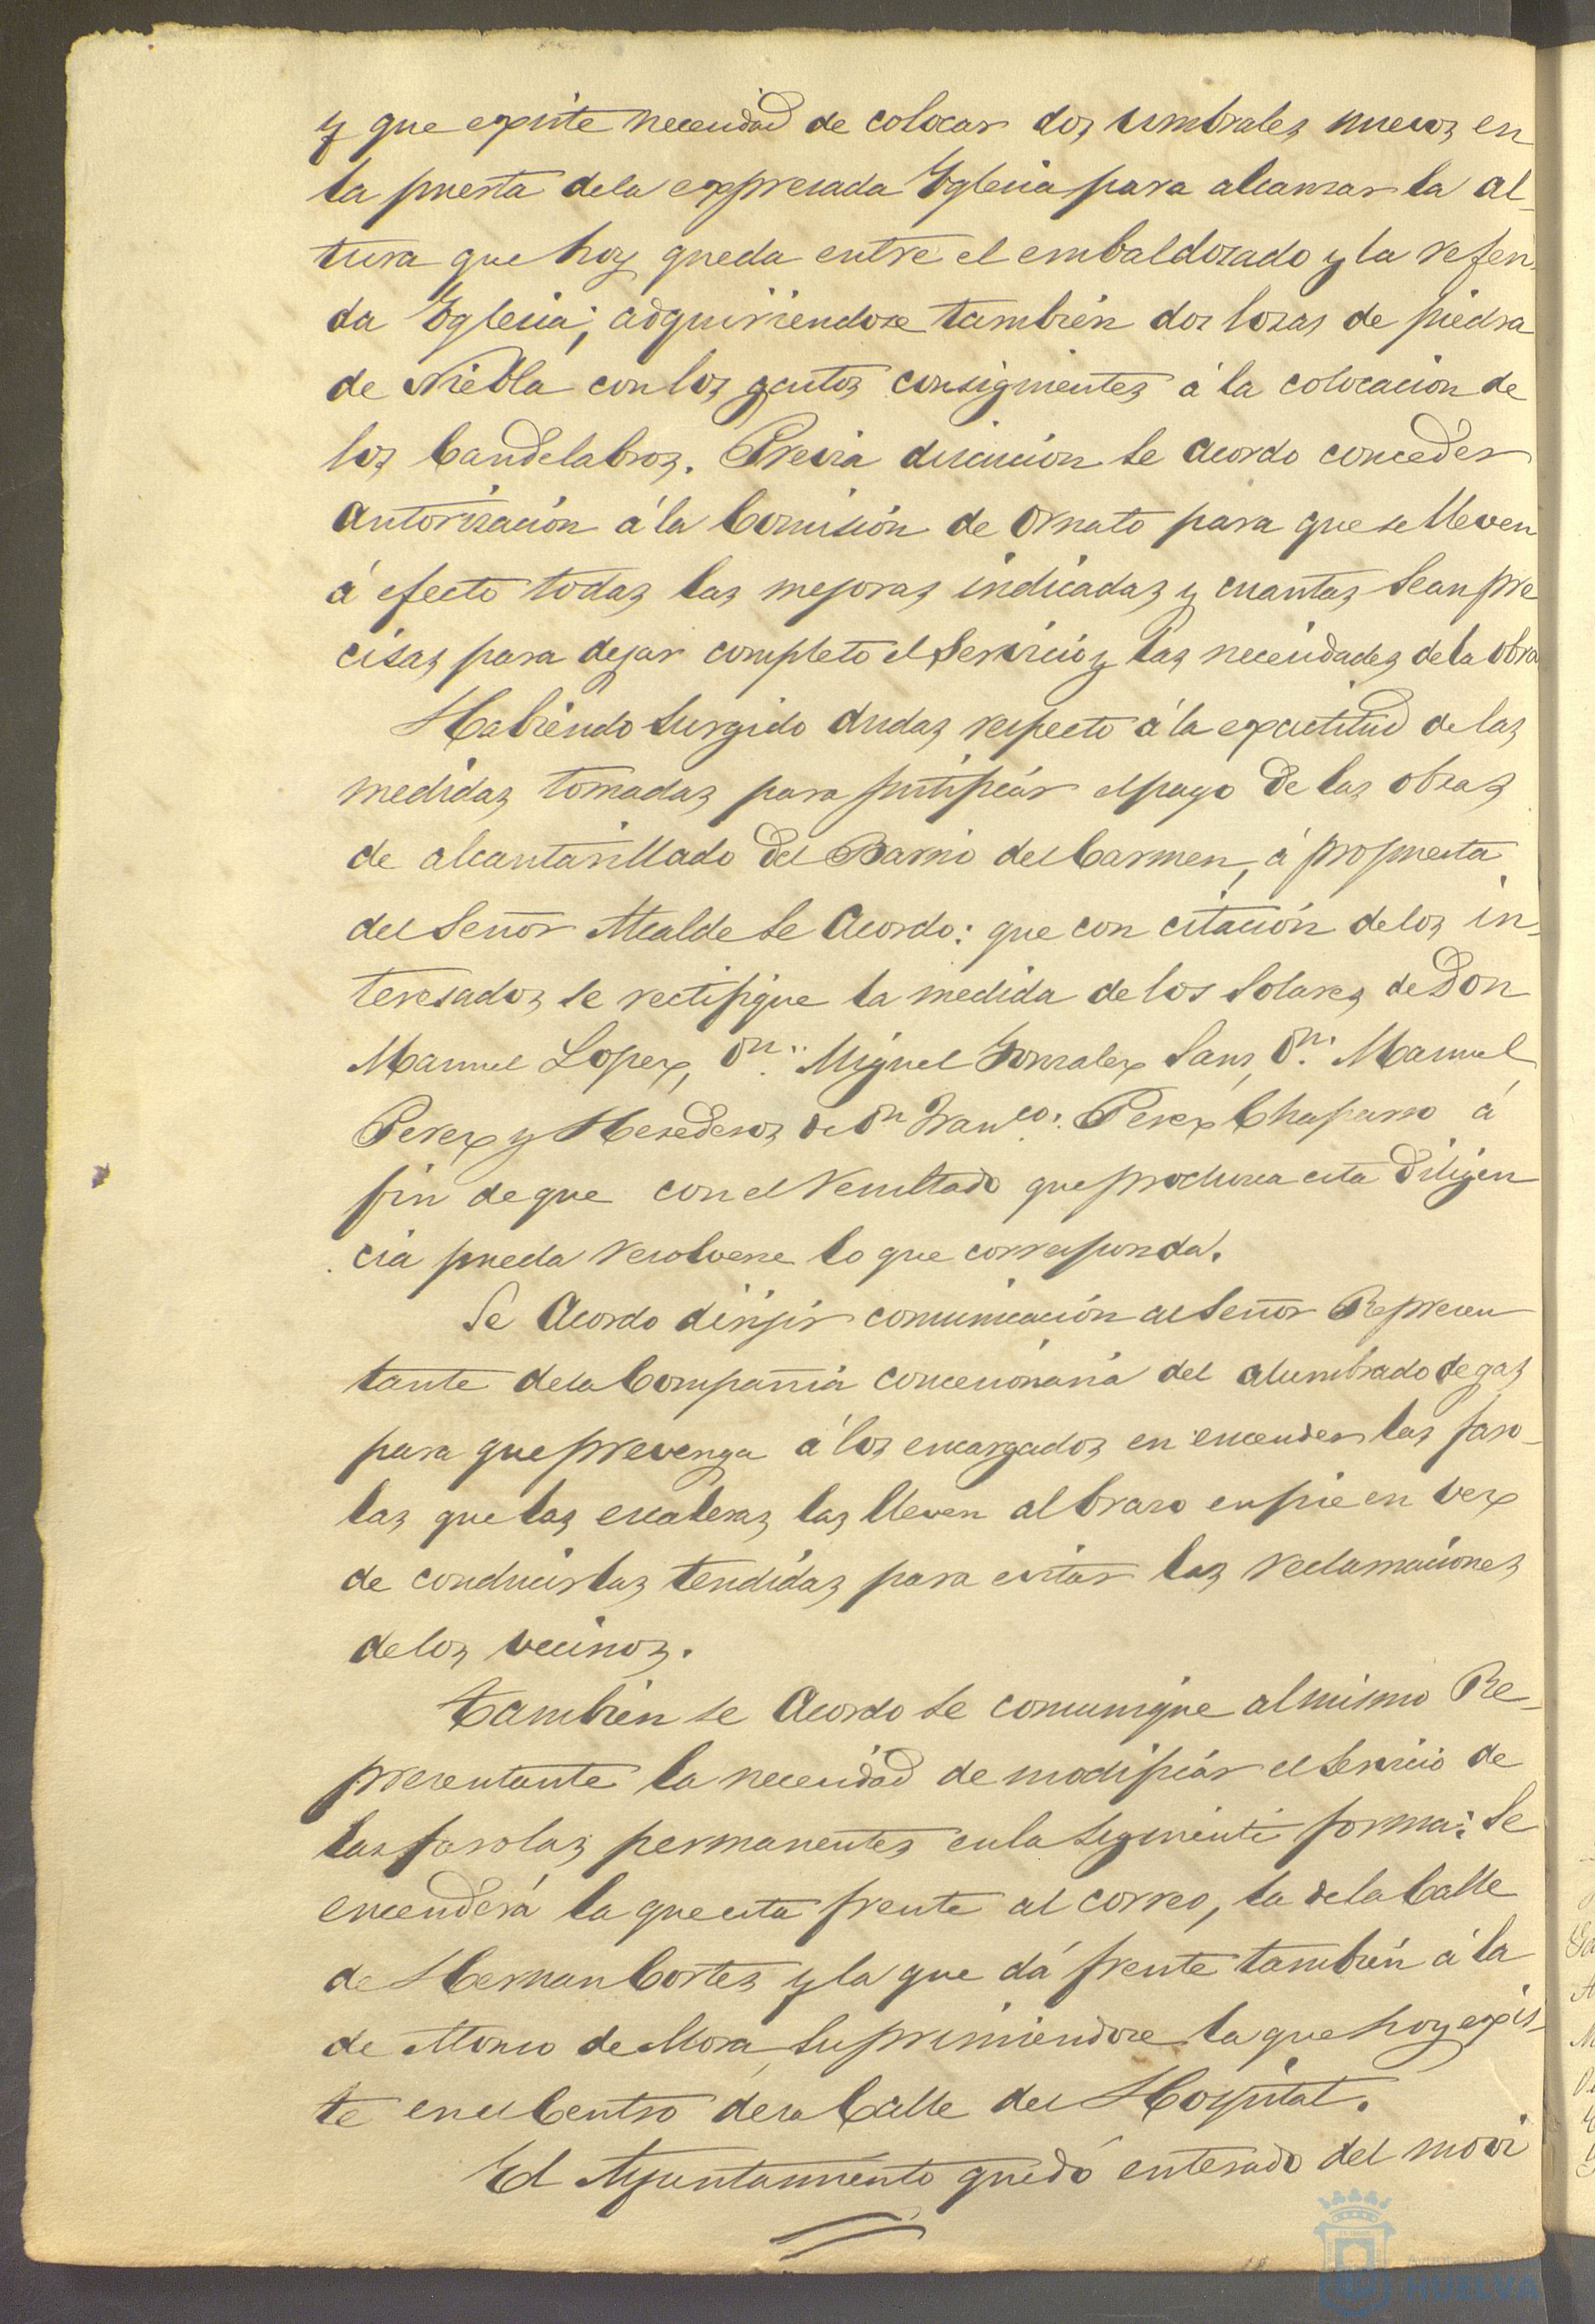 y que existe necesidad de colocar dos umbrales nuevos en
la puerta dela expresada Yglesia para alcanzar la al-
tura que hoy queda entre el embaldozado y la referi-
da Yglesia; adquiriendose también dos lozas de piedra
de Niebla con los gastos consiguientes á la colocación de
los Candelabros. Previa discución se acordo conceder
autorización á la Comisión de Ornato para que se lleven
á efecto todas las mejoras indicadas y cuantas sean pre
cisas para dejar completo el Servicio y las necesidades dela obra
Habiendo surgido dudas respecto á la exactitud de las
medidas tomadas para justificár el pago de las obras
de alcantarillado del Barrio del Carmen, á propuesta
del Señor Alcalde se acordo: que con citación delos in-
teresados se rectifique la medida de los Solares de Don
Manuel Lopez, Dn. Miguel Gonzalez Sanz, Dn. Manuel
Perez y Herederos de Dn Franco. Perez Chaparro á
fin de que con el resultado que produzca esta diligen
cia pueda resolverse lo que corresponda.
Se acordo dirijir comunicación al Señor Represen
tante dela Compañia concesionaria del alumbrado de gas
para que prevenga á los encargados en encender las faro-
las que las escaleras las lleven al brazo en pie en vez
de conducirlas tendidas para evitar las reclamaciones
delos vecinos.
También se acordo se comunique al mismo Re-
presentante la necesidad de modificár el servicio de
las farolas permanentes en la siguiente forma: Se
encenderá la que esta frente al correo, la dela Calle
de Hernan Cortes y la que dá frente también á la
de Alonso de Mora, suprimiendose la que hoy exis-
te en el Centro dela Calle del Hospital.
El Ayuntamiento quedó enterado del movi
HUELVA